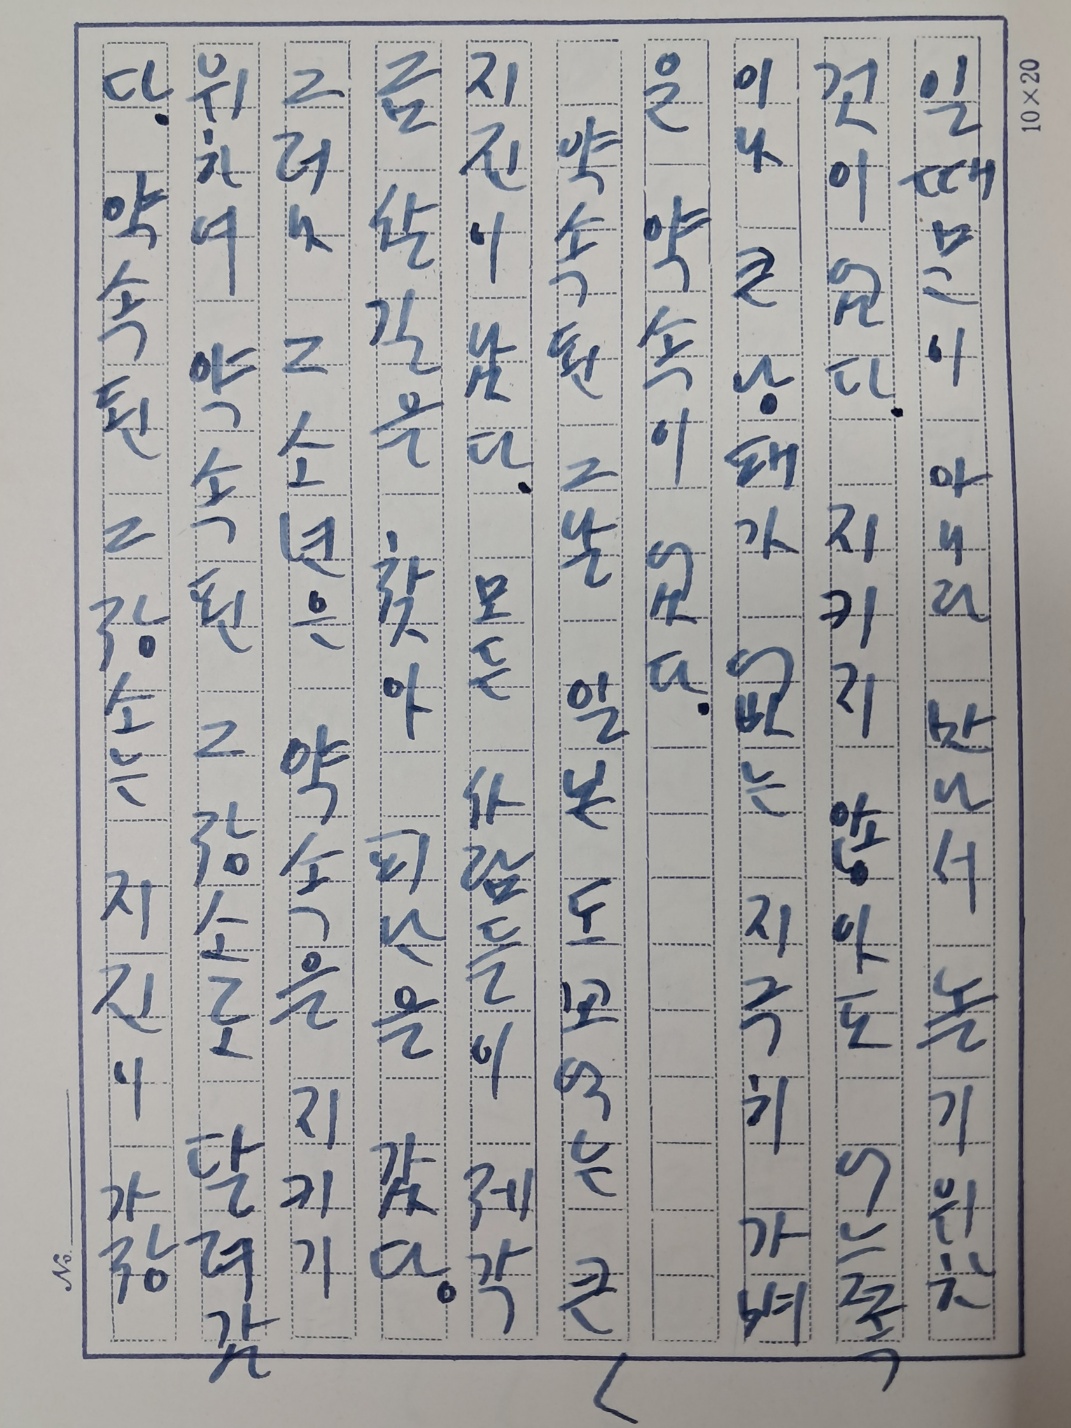 일 때문이 아니라 만나서 놀기 위한
것이었다. 지키지 않아도 어느쪽
이나 큰 낭패가 없는 지극히 가벼
운 약속이었다.
약속된 그날 일본 도쿄에는 큰
지진이 났다. 모든 사람들이 제각
금 살길을 찾아 피난을 갔다.
그러나 그 소년은 약속을 지키기
위하여 약속된 그 장소로 달려갔
다. 약속된 그 장소는 지진이 가장
10×20
No.